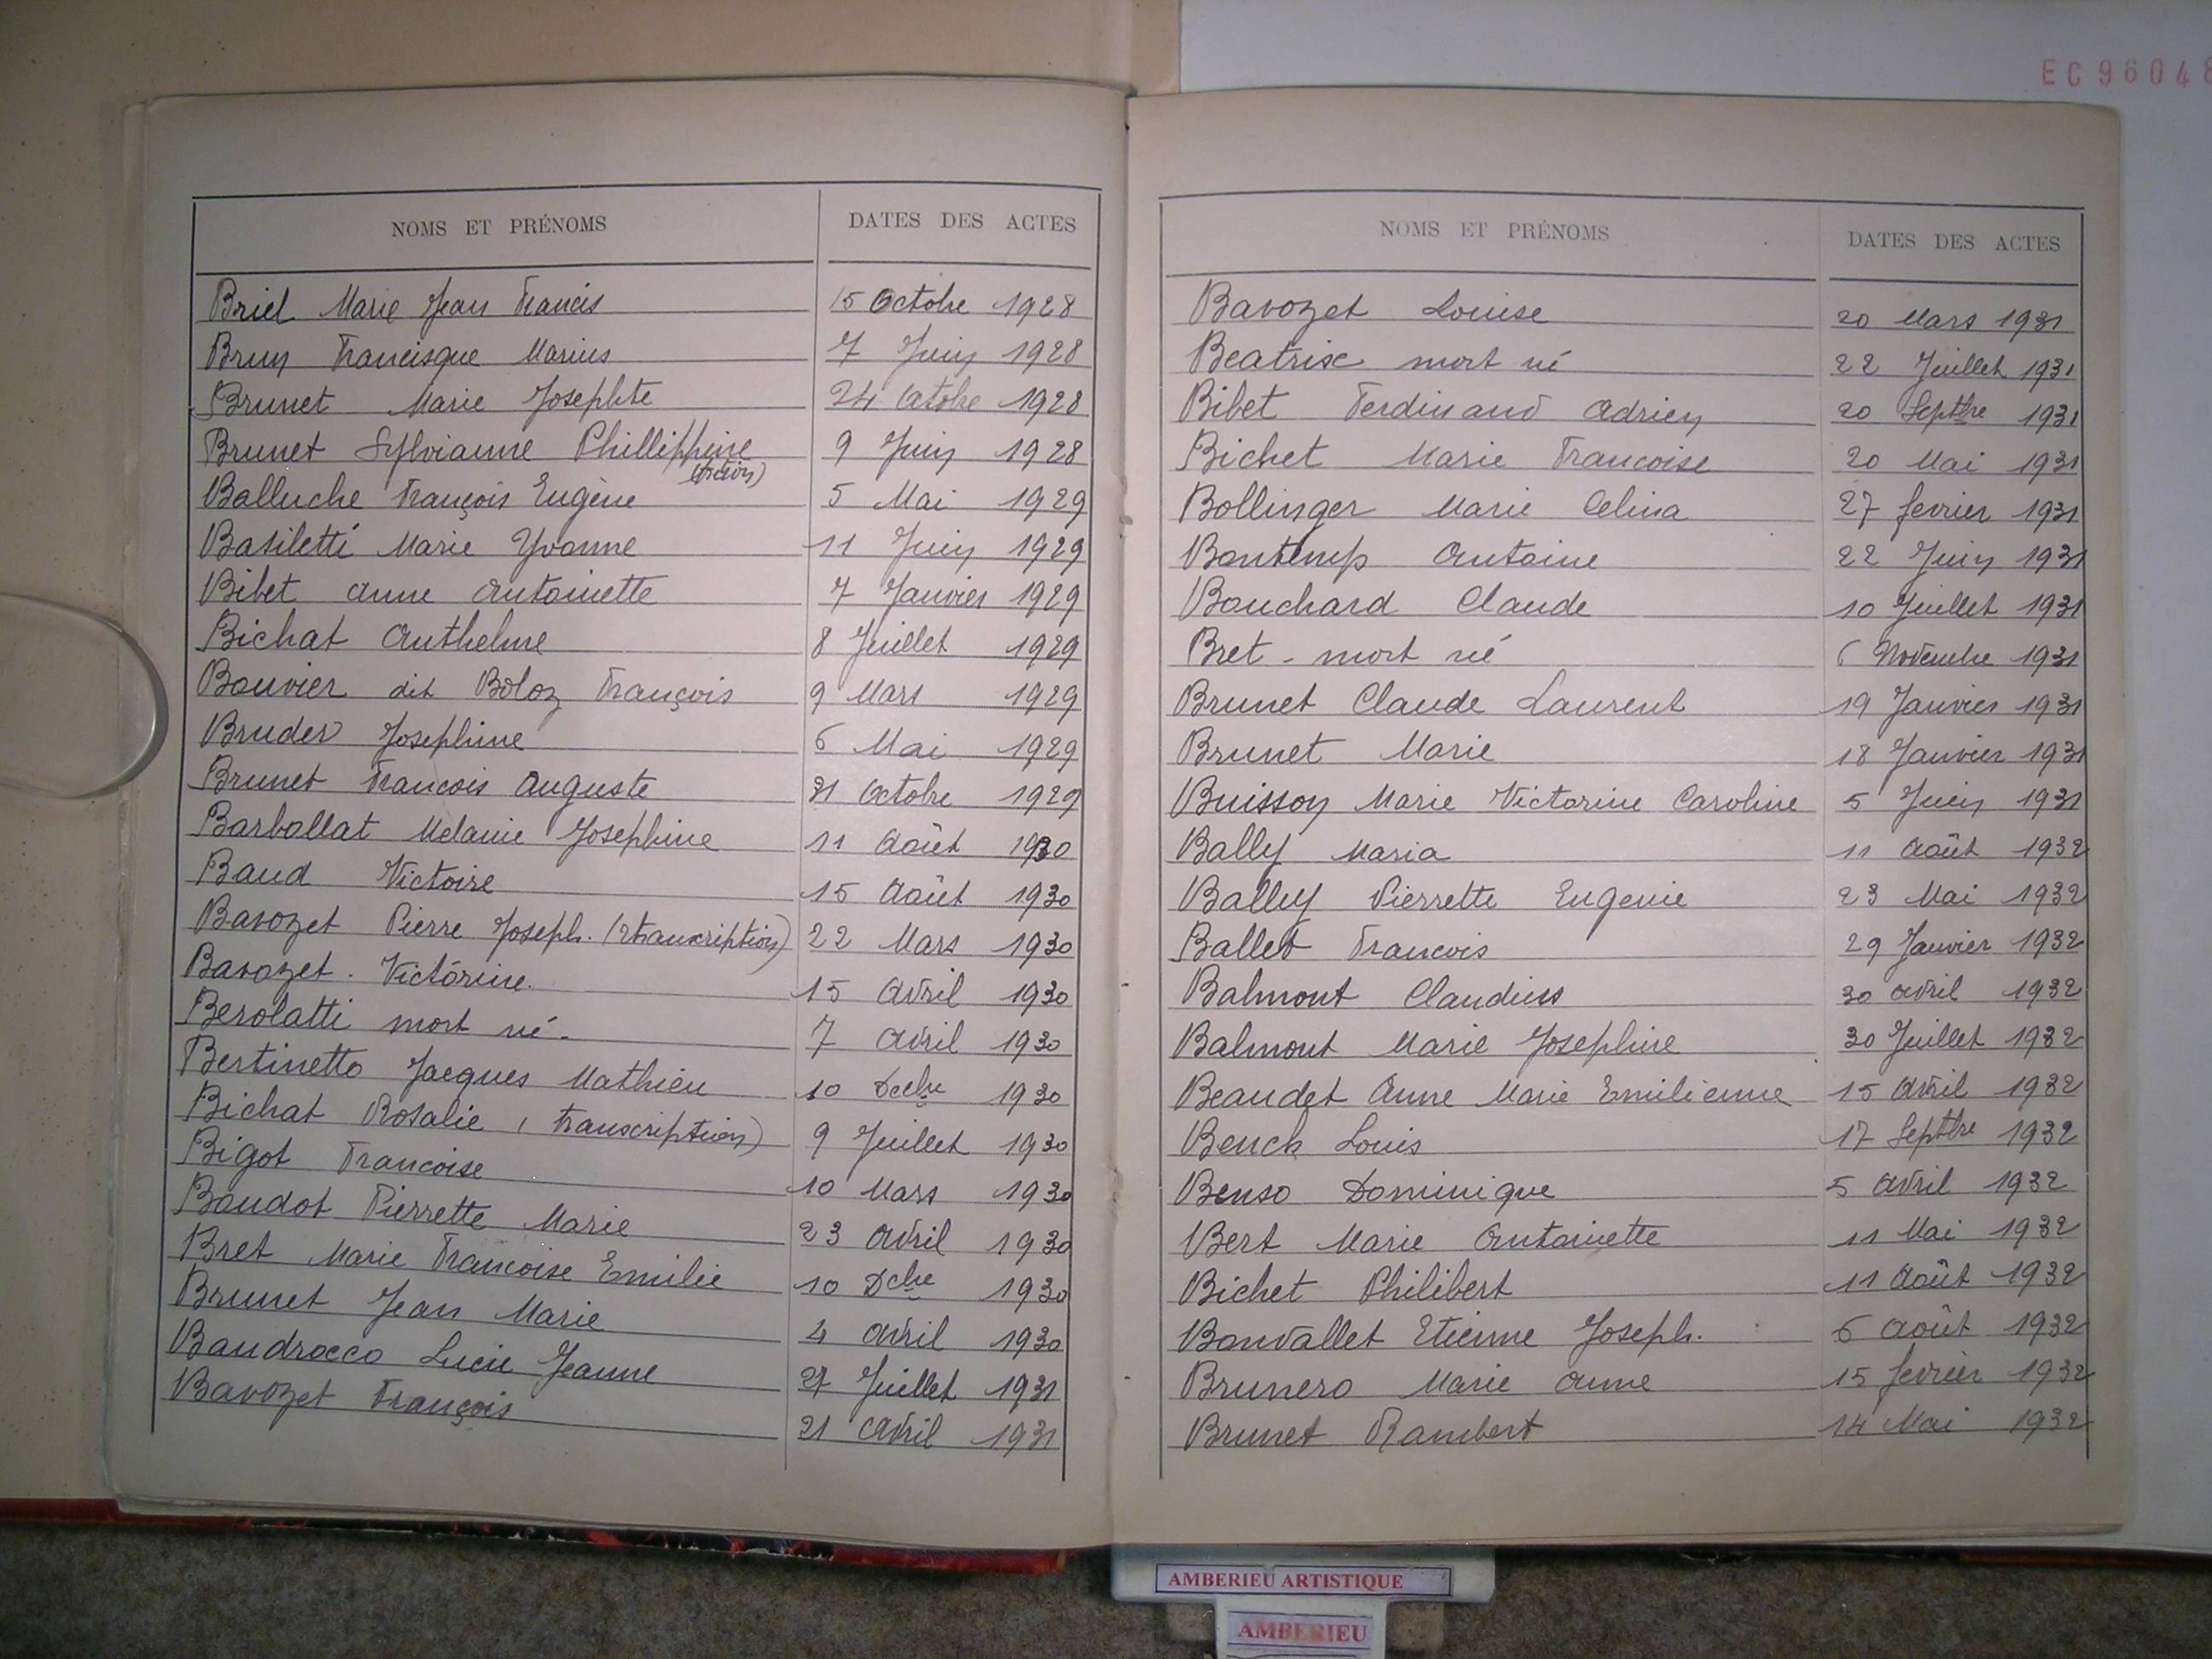 EC96048
NOMS ET PRÉNOMS DATES DES ACTES
Briel Marie Jean Francis 15 Octobre 1928
Brun Francisque Marius 7 Juin 1928
Brunet Marie Josephte 24 Octobre 1928
Brunet Sylvianne Phillippine 9 Juin 1928
Balluche François Eugène 5 Mai 1929
Basiletti Marie Yvonne 11 Juin 1929
Bibet Anne Antoinette 7 Janvier 1929
Bichat Anthelme 8 Juillet 1929
Bouvier dit Boloz François 9 Mars 1929
Bruder Josephine 6 Mai 1929
Brunet Francois Auguste 31 Octobre 1929
Barbollat Melanie Josephine 11 Août 1930
Baud Victoire 15 Août 1930
Bavozet Pierre Joseph. (transcription) 22 Mars 1930
Bavozet. Victorine. 15 Avril 1930
Berolatti mort né - 7 Avril 1930
Bertinetto Jacques Mathieu 10 Dcebre 1930
Bichat Rosalie (transcription) 9 Juillet 1930
Bigot Francoise 10 Mars 1930
Boudot Pierrette Marie 23 Avril 1930
Bret Marie Francoise Emilie 10 Dcbre 1930
Brunet Jean Marie 4 Avril 1930
Baudrocco Lucie Jeanne 27 Juillet 1931
Bavozet François 21 Avril 1931
NOMS ET PRÉNOMS DATES DES ACTES
Bavozet Louise 20 Mars 1931
Beatrix mort né 22 Juillet 1931
Bibet Ferdinand Adrien 20 Septbre 1931
Bichet Marie Francoise 20 Mai 1931
Bollinger Marie Celina 27 fevrier 1931
Bontemps Antoine 22 Juin 1931
Bouchard Claude 10 Juillet 1931
Bret - mort né 6 Novembre 1931
Brunet Claude Laurent 19 Janvier 1931
Brunet Marie 18 Janvier 1931
Buisson Marie Victorine Caroline 5 Juin 1931
Bally Maria 11 Août 1932
Bally Pierrette Eugenie 23 Mai 1932
Ballet Francois 29 Janvier 1932
Balmont Claudius 30 Avril 1932
Balmont Marie Josephine 30 Juillet 1932
Beaudet Anne Marie Emilienne 15 Avril 1932
Benck Louis 17 Septbre 1932
Benso Dominique 5 Avril 1932
Bert Marie Antoinette 11 Mai 1932
Bichet Philibert 11 Août 1932
Bonvallet Etienne Joseph. 6 Août 1932
Brunero Marie Anne 15 fevrier 1932
Brunet Rambert 14 Mai 1932
AMBERIEU ARTISTIQUE
AMBERIEU